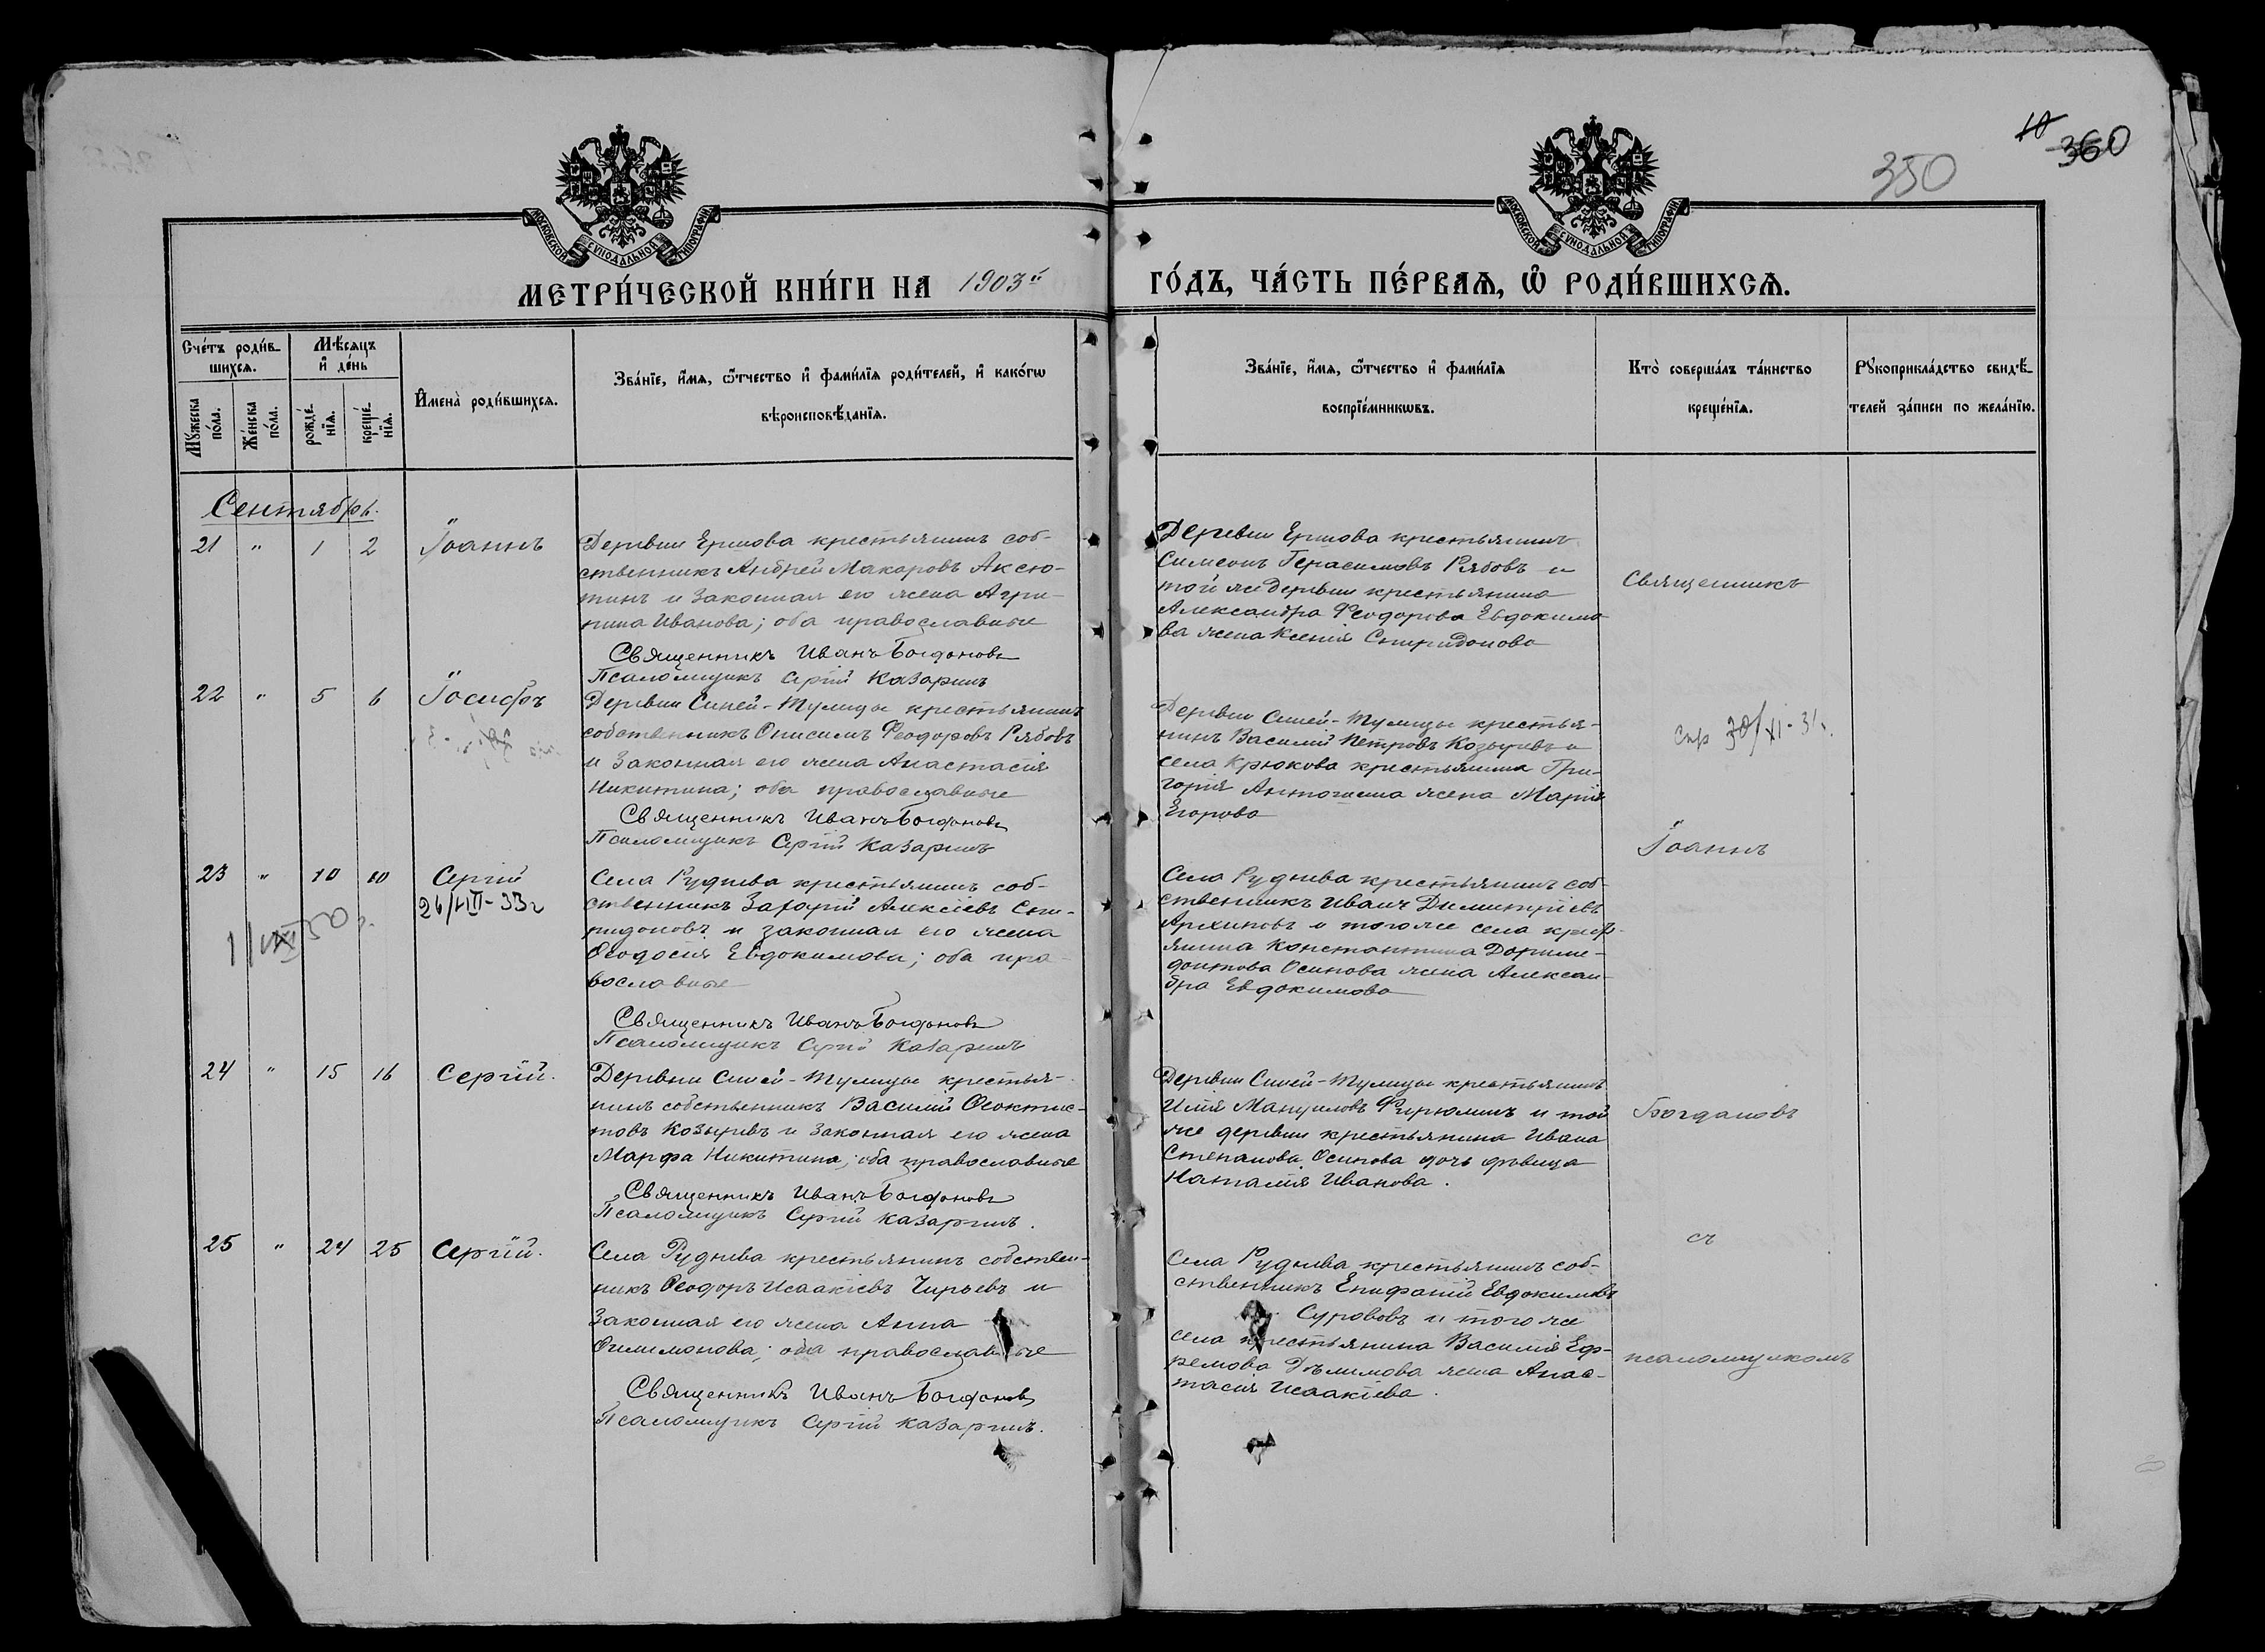 10
360
350
МОСКОВСКОЙ СѴНОДАЛЬНОЙ ТИПОГРАФІИ
МОСКОВСКОЙ СѴНОДАЛЬНОЙ ТИПОГРАФІИ
МЕТРИ́ЧЕСКОЙ КНИ́ГИ НА 1903й
ГО́ДЪ, ЧА́СТЬ ПЕ́РВАѦ, Ѽ РОДИ́ВШИХСѦ.
Сче́тъ роди́в-
шихсѧ.
Мѣ́сѧцъ
и҆ де́нь
Мꙋ́жеска
по́ла.
Же́нска
по́ла.
рожде́-
нїѧ.
креще́-
нїѧ.
И҆мена̀ роди́вшихсѧ.
Зва́нїе, и҆́мѧ, ѻ҆́тчество и҆ фами́лїѧ роди́телей, и҆ како́гѡ
вѣроисповѣ́данїѧ.
Зва́нїе, и҆́мѧ, ѻ҆́тчество и҆ фами́лїѧ
воспрїе́мникѡвъ.
Кто̀ соверша́лъ та́инство
креще́нїѧ.
Рꙋкоприкла́дство свидѣ́-
телей за́писи по жела́нїю.
Сентябрь.
21 " 1 2 Іоаннъ
Деревни Ершова крестьянинъ соб-
ственникъ Андрей Макаровъ Аксю-
тинъ и законная его жена Агри-
пина Иванова; оба православные
Священникъ Иванъ Богдановъ
Псаломщикъ Сергій Казаринъ
Деревни Ершова крестьянинъ
Симеонъ Герасимовъ Рябовъ и
той же деревни крестьянина
Александра Феодорова Евдокимо
ва жена Ксенія Спиридонова
Священникъ
22 " 5 6 Іосифъ
Деревни Синей-Тулицы крестьянинъ
собственникъ Онисимъ Феодоровъ Рябовъ
и законная его жена Анастасія
Никитина; оба православные
Священникъ Иванъ Богдановъ
Псаломщикъ Сергій Казаринъ
Деревни Синей-Тулицы крестья-
нинъ Василій Петровъ Козыревъ и
села Крюкова крестьянина Гри-
горія Антошина жена Марія
Егорова
спр 30/XI-31.
Іоаннъ
23 " 10 10 Сергій
Села Руднева крестьянинъ соб-
ственникъ Захарій Алексіевъ Спи-
ридоновъ и законная его жена
Ѳеодосія Евдокимова; оба пра-
вославные
Священникъ Иванъ Богдановъ
Псаломщикъ Сергій Казаринъ
Села Руднева крестьянинъ соб-
ственникъ Иванъ Димитріевъ
Архиповъ и того же села крест-
янина Константина Дориме-
донтова Осипова жена Алексан-
дра Евдокимова
24 " 15 16 Сергій.
Деревни Синей-Тулицы крестья-
нинъ собственникъ Василій Ѳеоктис-
товъ Козыревъ и законная его жена
Марфа Никитина; оба православные
Священникъ Иванъ Богдановъ
Псаломщикъ Сергій Казаринъ.
Деревни Синей-Тулицы крестьянинъ
Илія Мануиловъ Фирюлинъ и той
же деревни крестьянина Ивана
Степанова Осипова дочь дѣвица
Наталія Иванова.
Богдановъ
съ
25 " 24 25 Сергій.
Села Руднева крестьянинъ собствен-
никъ Ѳеодоръ Исаакіевъ Чирьевъ и
законная его жена Анна
Филимонова; оба православные
Священникъ Иванъ Богдановъ
Псаломщикъ Сергій Казаринъ.
Села Руднева крестьянинъ соб-
ственникъ Епифаній Евдокимовъ
Сурововъ и того же
села крестьянина Василія Еф-
ремова жена Анас-
тасія Исаакіева.
псаломщикомъ